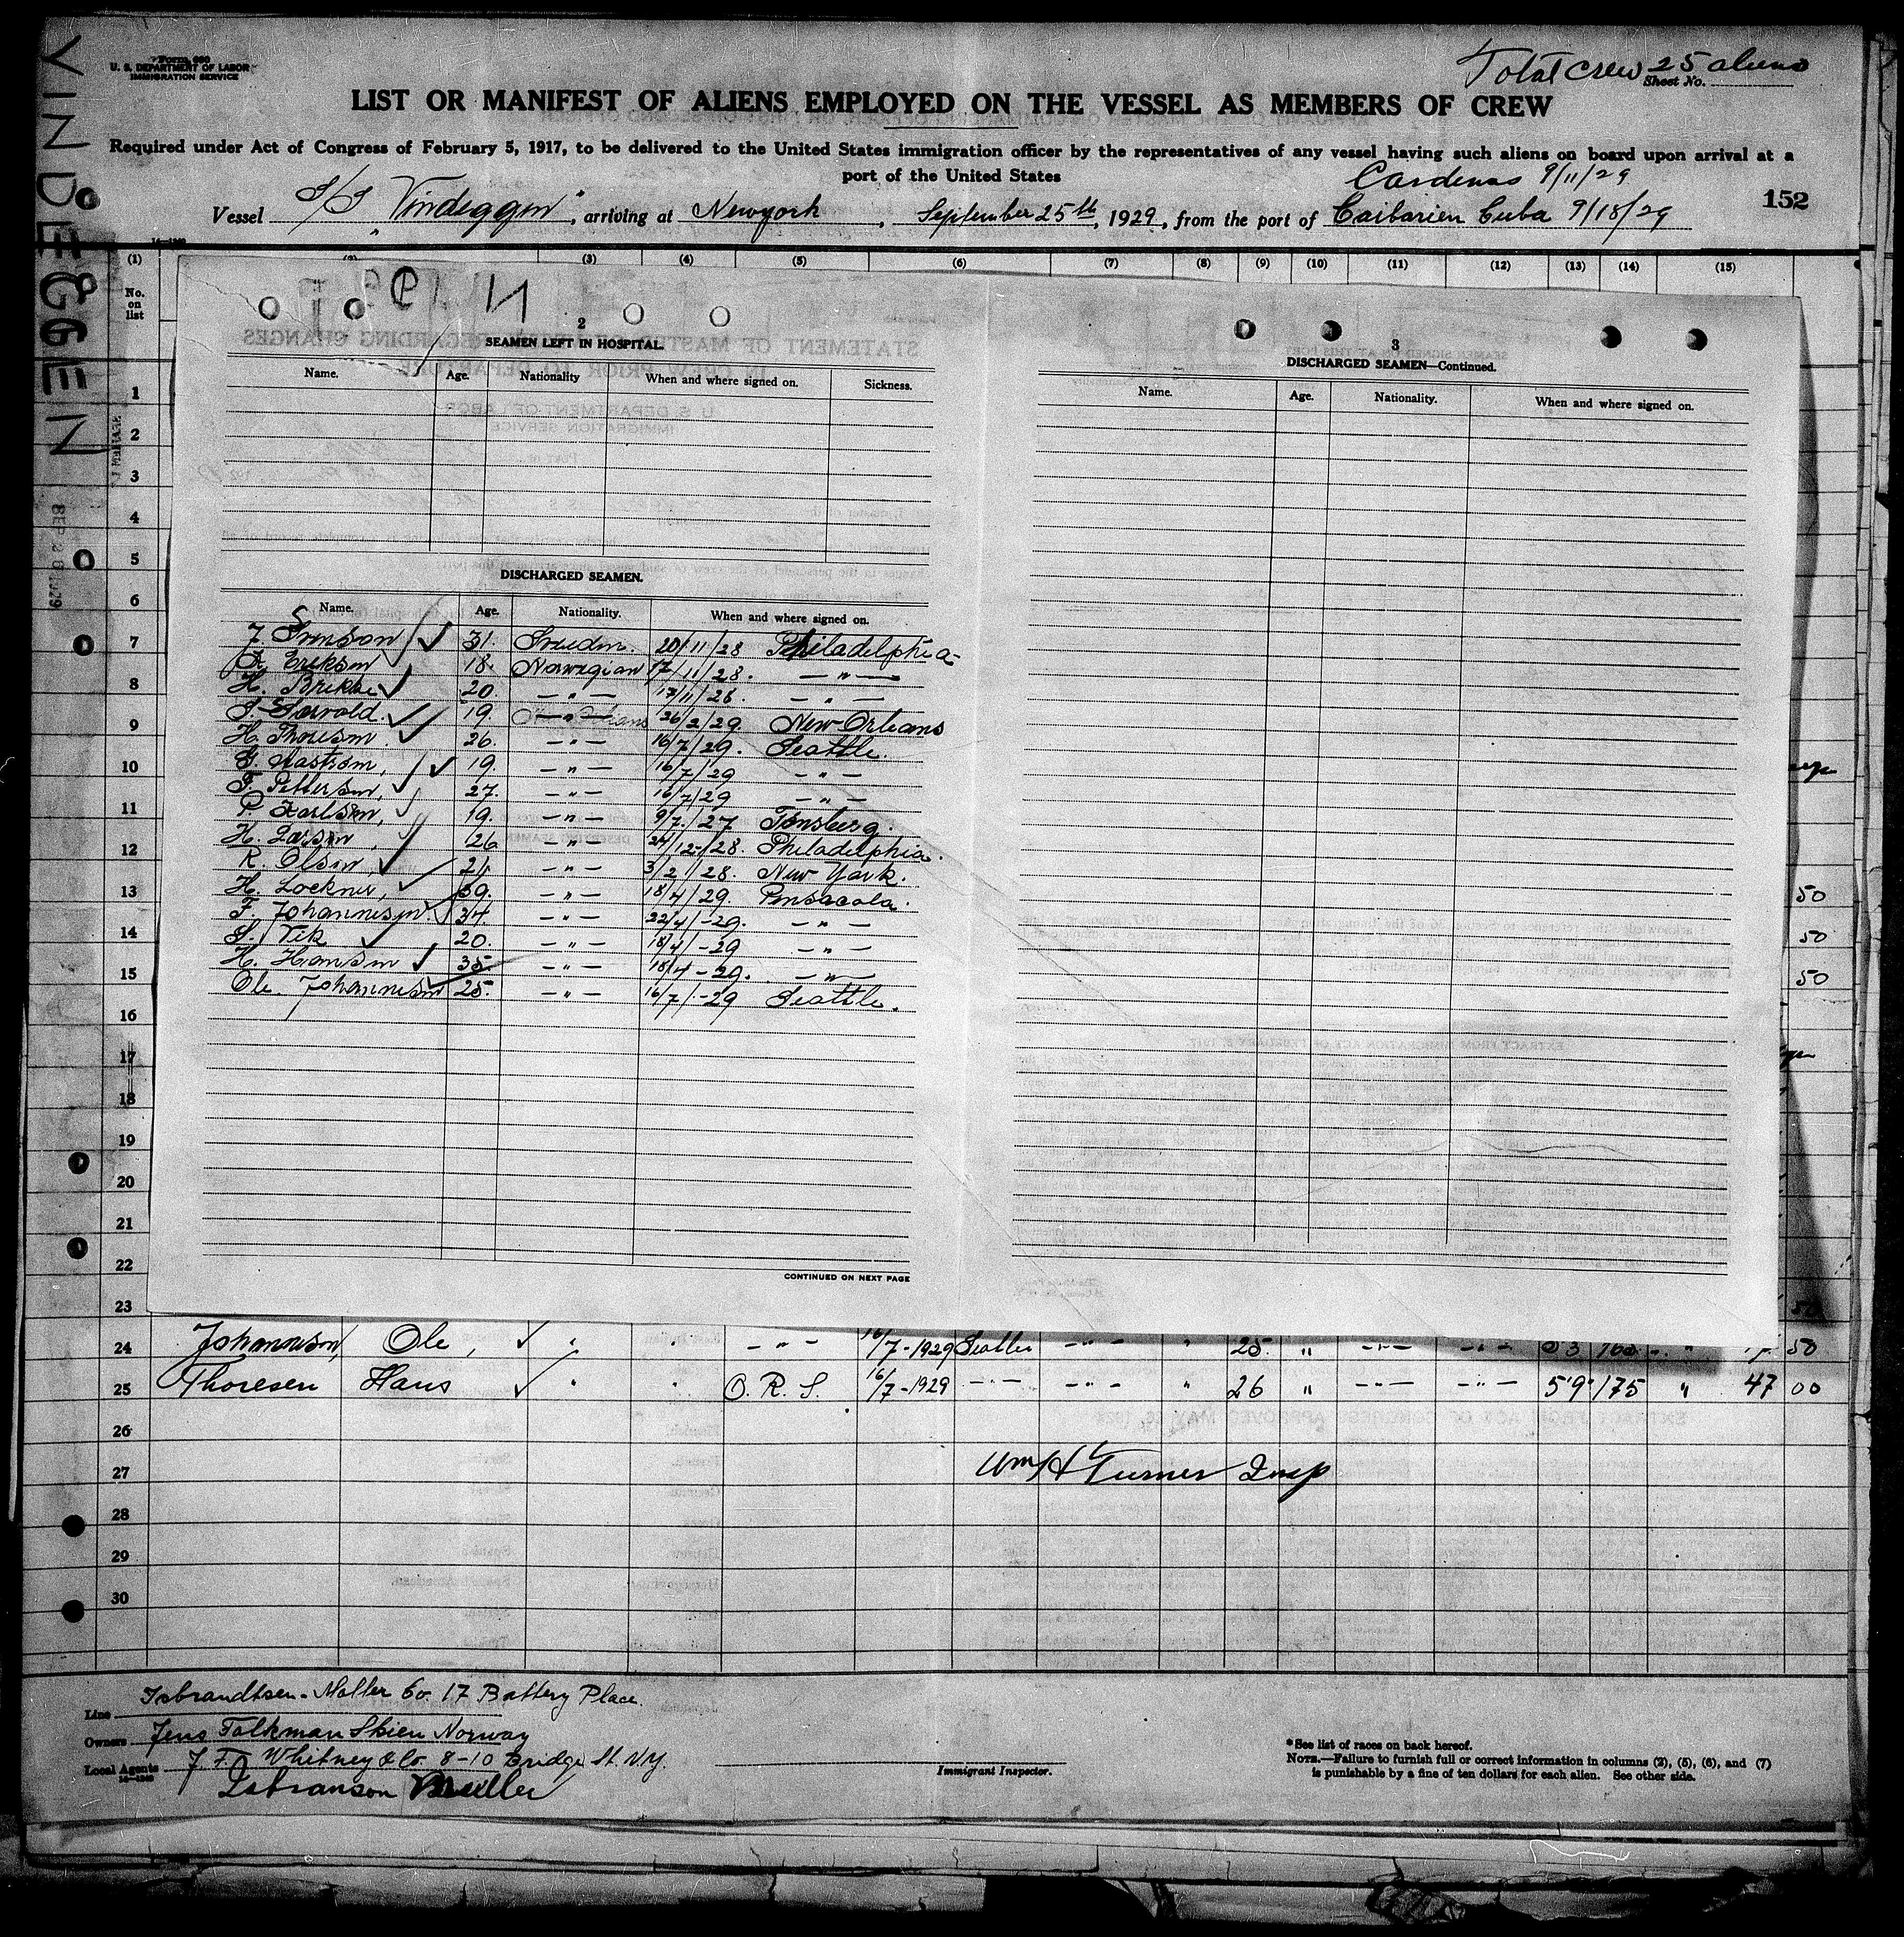 Form 680
U. S. DEPARTMENT OF LABOR
IMMIGRATION SERVICE
Total crew 25 aliens
Sheet No.
LIST OR MANIFEST OF ALIENS EMPLOYED ON THE VESSEL AS MEMBERS OF CREW
Required under Act of Congress of February 5, 1917, to be delivered to the United States immigration officer by the representatives of any vessel having such aliens on board upon arrival at a
port of the United States
Cardenas 9/11/29
152
Vessel S/S "Vindeggen", arriving at Newyork, September 25th, 1929, from the port of Caibarien Cuba 9/18/29
VINDEGGEN
SEP 26 1929
(1) (3) (4) (5) (6) (7) (8) (9) (10) (11) (12) (13) (14) (15)
No. on list
2
SEAMEN LEFT IN HOSPITAL.
Name. Age. Nationality When and where signed on. Sickness.
DISCHARGED SEAMEN.
Name. Age. Nationality. When and where signed on.
31. Sweden. 20/11/28 Philadelphia
Eriksen 18. Norwegian 17/11/28. — " —
H. 20. — " — 17/11/28. — " —
19. — " — 26/2/29 New Orleans
H. Thoresen 26. — " — 16/7/29. Seattle.
19. — " — 16/7/29 — " —
Pettersen, 27. — " — 16/7/29 — " —
P. Karlsen, 19. — " — 9/7/27 Tønsberg.
H. Larsen, 26 — " — 24/12/28. Philadelphia.
R. Olsen, 21. — " — 3/2/28. New York.
H. Lockner, 39. — " — 18/4/29. Pensacola.
F. Johannesen. 34. — " — 22/4/-29. — " —
S. Vik 20. — " — 18/4/-29 — " —
H. Hansen 35. — " — 18/4-29. — " —
Ole. Johannesen 25. — " — 16/7/-29 Seattle.
CONTINUED ON NEXT PAGE
3
DISCHARGED SEAMEN—Continued.
Name. Age. Nationality. When and where signed on.
1
2
3
4
5
6
7
8
9
10
11
12
13 50
14 50
15 50
16
17
18
19
20
21
22
23 50
24 Johannesen, Ole, " " — " — 16/7-1929 Seattle — " — " 25. " — " — — " — 50
25 Thoresen Hans " " O. R. S. 16/7-1929 — " — — " — " 26 " — " — — " — 5'9" 175 " 47 00
26
27 Wm H Turner Insp
28
29
30
Line Isbrandtsen-Moller Co. 17 Battery Place.
Owners Jens Falkman Skien Norway
Local Agents J. F. Whitney & Co. 8-10 Bridge St. N.Y.
Isbranson Mueller
Immigrant Inspector.
* See list of races on back hereof.
NOTE.—Failure to furnish full or correct information in columns (2), (5), (6), and (7)
is punishable by a fine of ten dollars for each alien. See other side.